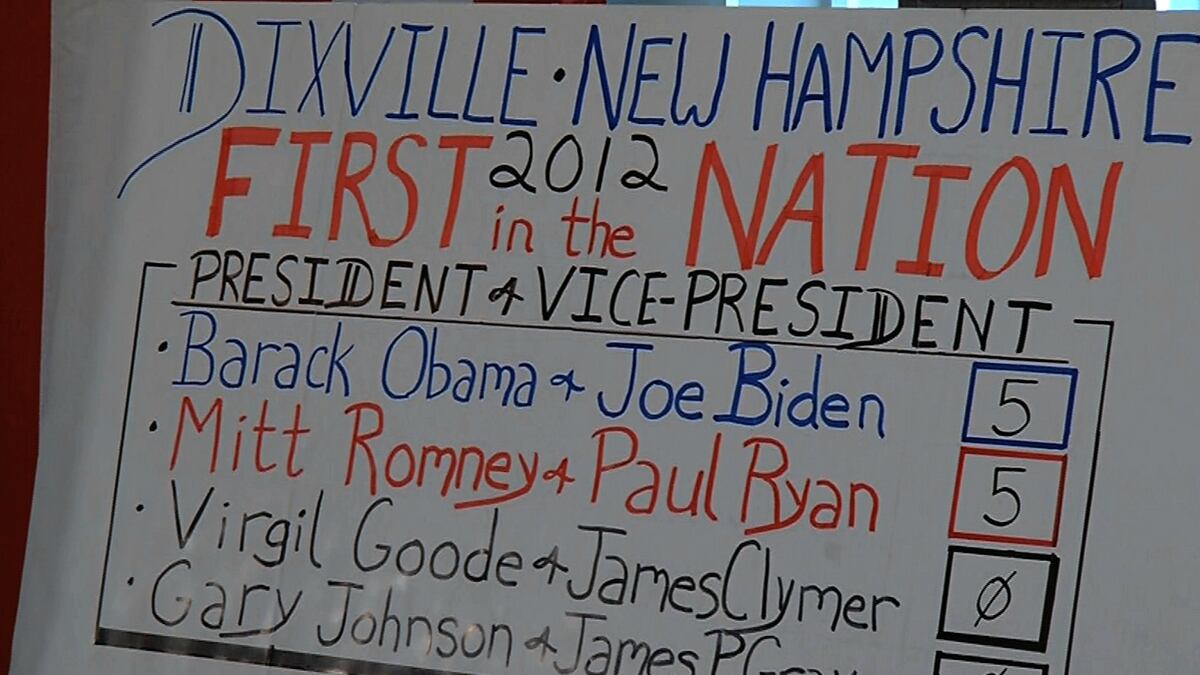 DIXVILLE · NEW HAMPSHIRE
FIRST 2012 in the NATION
PRESIDENT & VICE-PRESIDENT
· Barack Obama & Joe Biden 5
· Mitt Romney & Paul Ryan 5
· Virgil Goode & James Clymer Ø
· Gary Johnson & James P